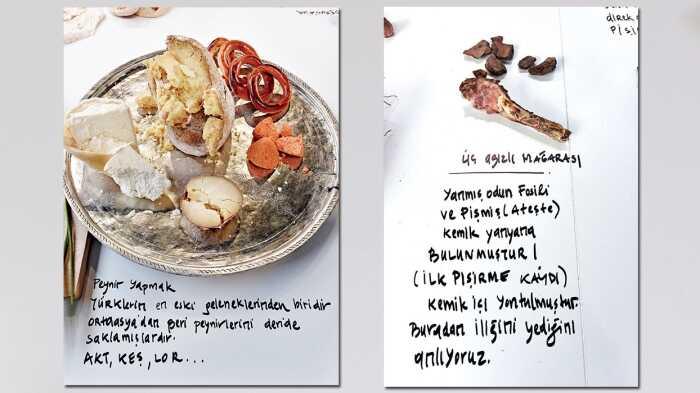 Peynir Yapmak
Türklerin en eski geleneklerinden biridir
ortaasya'dan beri peynirlerini deride
saklamışlardır.
AKT, KEŞ, LOR...
direk
PİŞİ
üç ağızlı MAĞARASI
Yanmış odun Fosili
ve Pişmiş (Ateşte)
kemik yanyana
BULUNMUŞTUR!
(İLK PİŞİRME KAYDI)
kemik içi yontulmuştur.
Buradan İliğini yediğini
anlıyoruz.